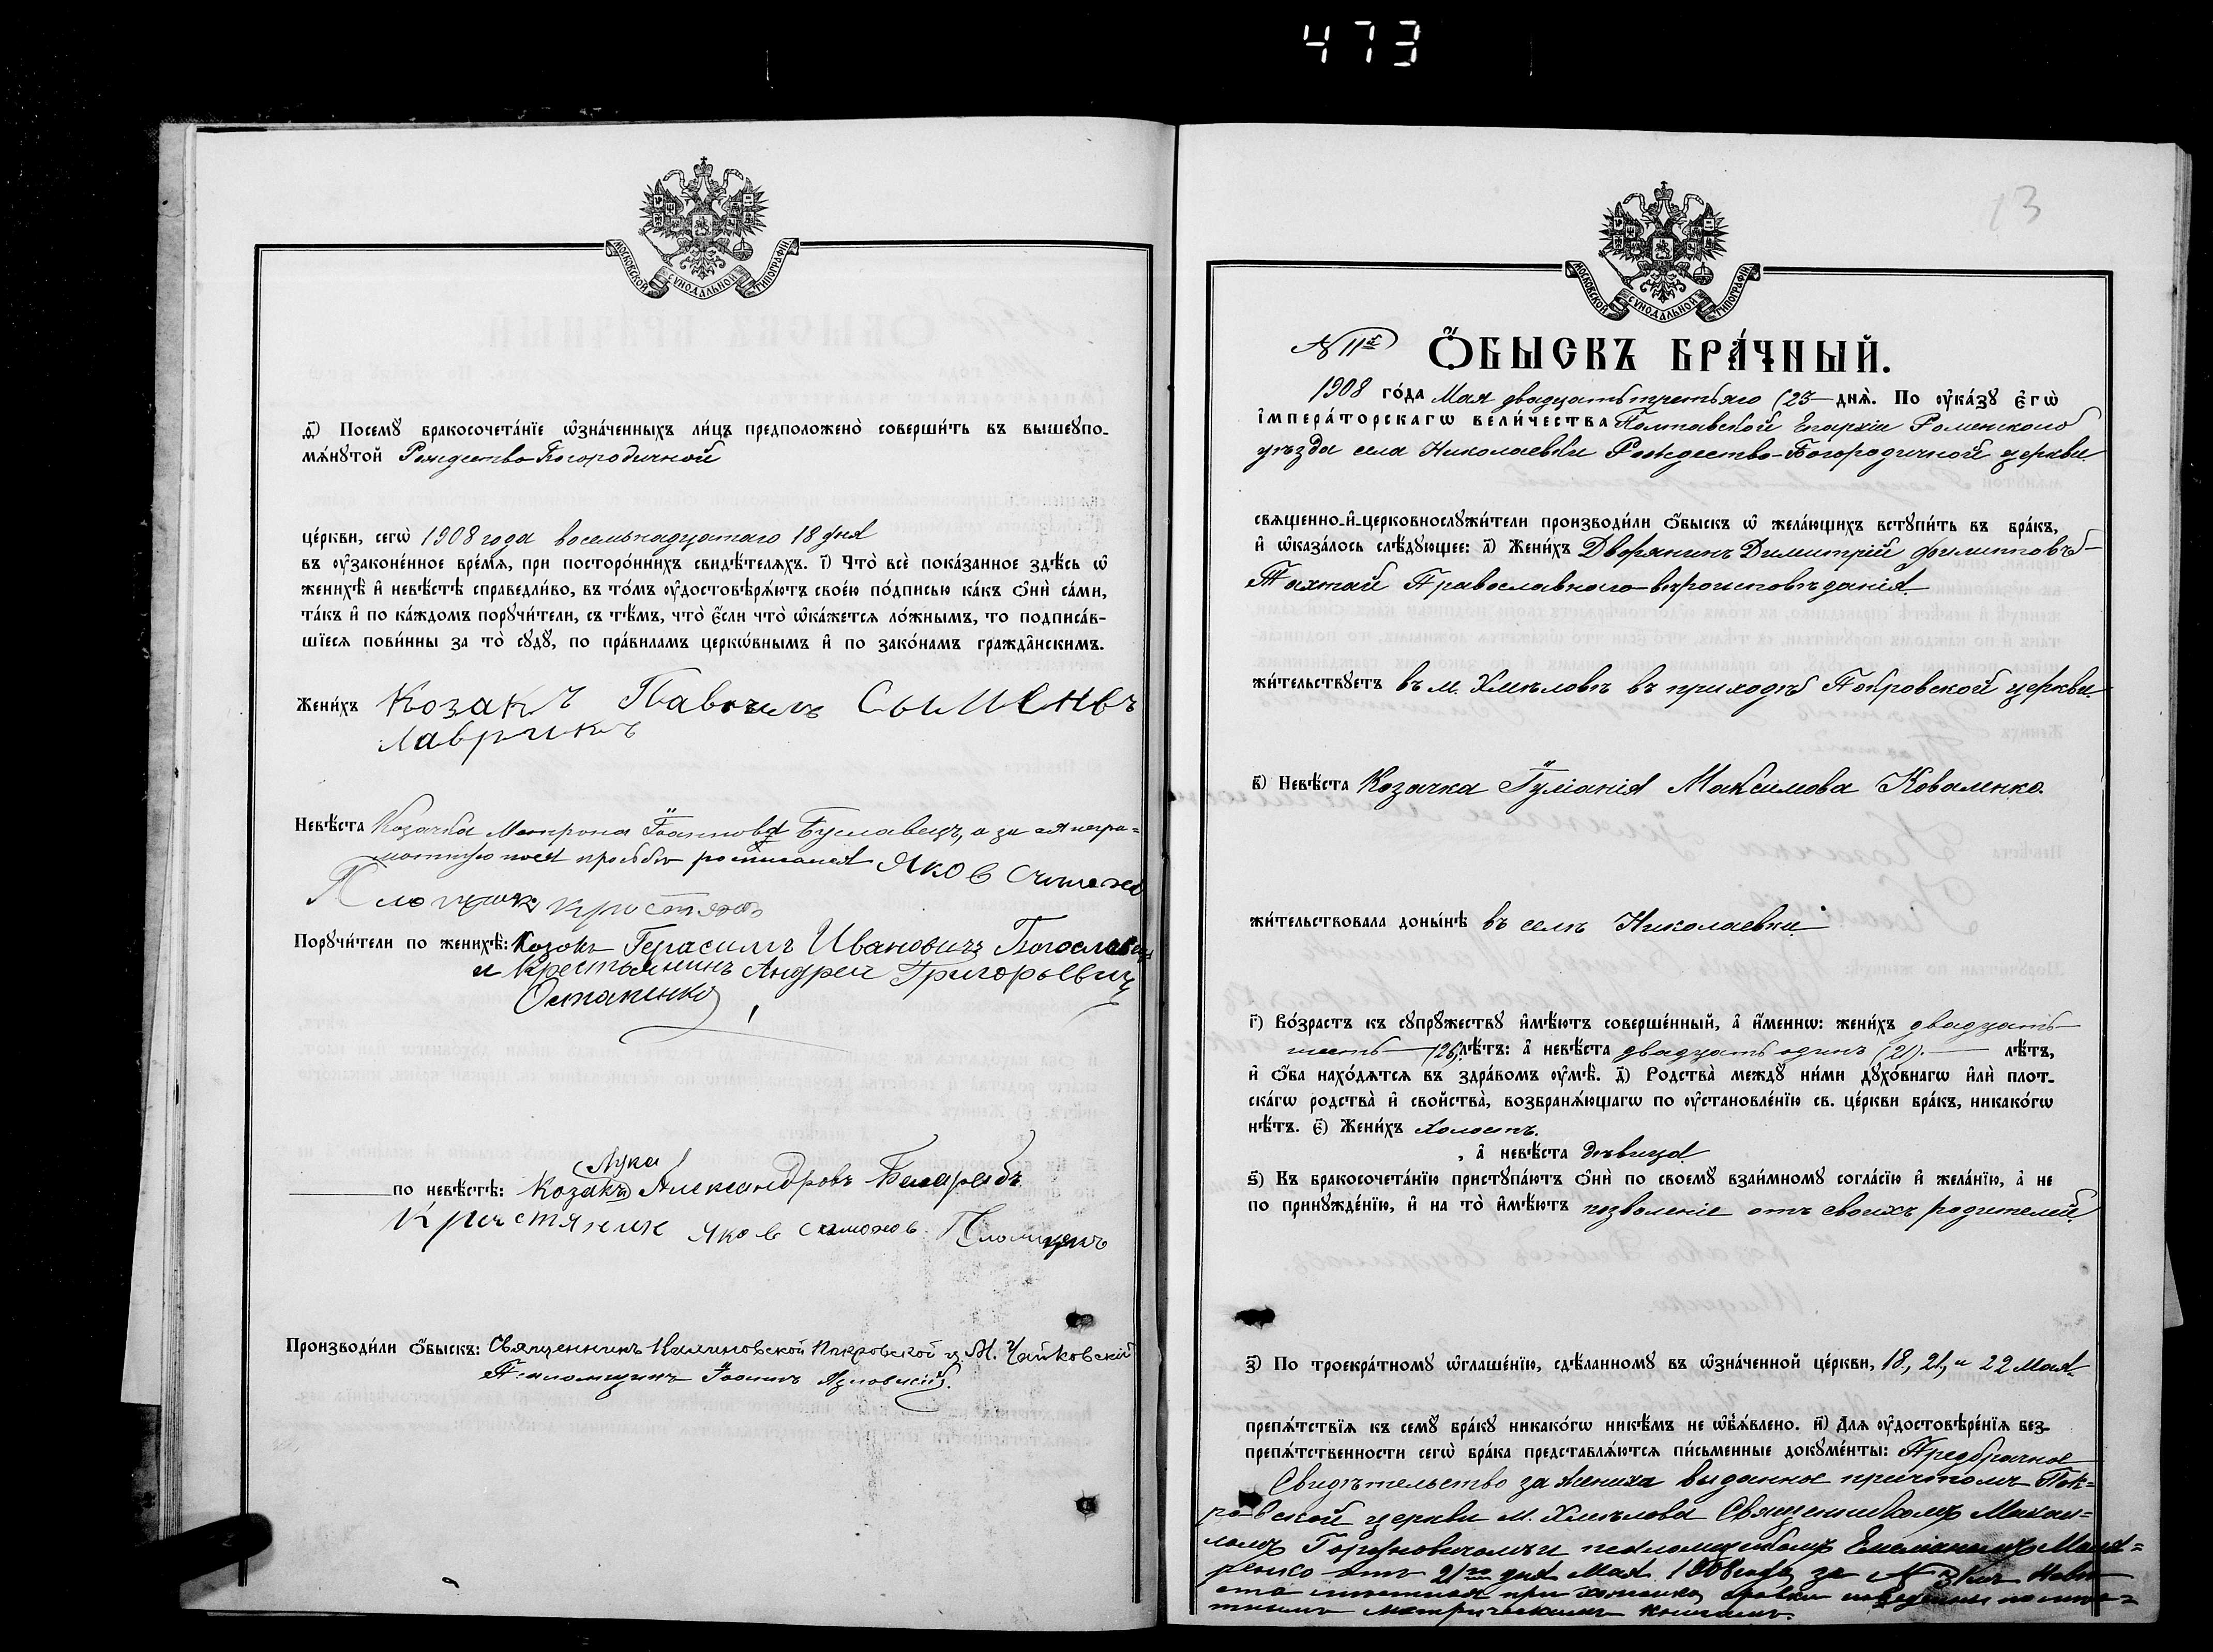 473
МОСКОВСКОЙ СУНОДАЛЬНОЙ ТИПОГРАФІИ
ѳ҃) Посемꙋ̀ бракосочета́нїе ѡ҆зна́ченныхъ ли́цъ предположено̀ соверши́ть въ вышеꙋпо-
мѧ́нꙋтой Рождество-Богородичной
це́ркви, сегѡ̀ 1908 года восемьнадцатаго 18 дня
въ ᲂу҆законе́нное вре́мѧ, при посторо́ннихъ свидѣ́телѧхъ. і҃) Что̀ всѐ пока́занное здѣ́сь ѡ҆
женихѣ̀ и҆ невѣ́стѣ справедли́во, въ то́мъ ᲂу҆достовѣрѧ́ютъ свое́ю по́дписью ка́къ ѻ҆нѝ са́ми,
та́къ и҆ по ка́ждомъ порꙋчи́тели, съ тѣ́мъ, что̀ є҆́сли что̀ ѡ҆ка́жетсѧ ло́жнымъ, то подписа́в-
шїесѧ пови́нны за то̀ сꙋдꙋ̀, по пра́виламъ церкѡ́внымъ и҆ по зако́намъ гражда̑нскимъ.
Жени́хъ Козакъ Павелъ Сыменвъ
Лаврикъ
Невѣ́ста Козачка Матрона Іоаннова Буславецъ, а за ея негра=
мотную поея просьбѣ росписался Яков
Порꙋчи́тели по женихѣ̀: Козакъ Герасимъ Ивановичъ Богославец
и Крестьянинъ Андрей Григорьевичъ
Остапенко
Лука
по невѣ́стѣ: Козакъ Александровъ
Яков
Производи́ли ѻ҆́быскъ: Священникъ Покровской ц. М. Чайковскій
Псаломщикъ Іоаннъ
13
МОСКОВСКОЙ СУНОДАЛЬНОЙ ТИПОГРАФІИ
№ 11й
Ѻ҆́БЫСКЪ БРА́ЧНЫЙ.
1908 го́да Мая двадцать третьяго (23 днѧ̀. По ᲂу҆ка́зꙋ є҆гѡ̀
і҆мпера́торскагѡ вели́чества Полтавской Епархіи Роменского
уѣзда села Николаевки Рождество-Богородичной церкви
свѧщенно-и҆-церковнослꙋжи́тели производи́ли ѻ҆́быскъ ѡ҆ жела́ющихъ встꙋпи́ть въ бра́къ,
и҆ ѡ҆каза́лось слѣ́дꙋющее: а҃) Жени́хъ Дворянинъ Димитрій Филипповъ
Тахтай Православного вѣроисповѣданія.
жи́тельствꙋетъ въ м. Хмѣловѣ въ приходѣ Покровской церкви.
в҃) Невѣ́ста Козачка Іуліанія Максимова Коваленко.
жи́тельствовала доны́нѣ въ селѣ Николаевки.
г҃) Во́зрастъ къ сꙋпрꙋ́жествꙋ и҆мѣ́ютъ соверше́нный, а҆ и҆́меннѡ: жени́хъ двадцать
шесть (26) лѣ́тъ: а҆ невѣ́ста двадцать одинъ (21). лѣ́тъ,
и҆ ѻ҆́ба нахо́дѧтсѧ въ здра́вомъ ᲂу҆мѣ̀. д҃) Родства̀ междꙋ̀ ни́ми дꙋхо́внагѡ и҆лѝ плот-
ска́гѡ родства̀ и҆ свойства̀, возбранѧ́ющагѡ по ᲂу҆становле́нїю св. це́ркви бра́къ, никако́гѡ
нѣ́тъ. є҃) Жени́хъ холостъ.
, а҆ невѣ́ста дѣвица.
ѕ҃) Къ бракосочета́нїю пристꙋпа́ютъ ѻ҆нѝ по своемꙋ̀ взаи́мномꙋ согла́сїю и҆ жела́нїю, а҆ не
по принꙋжде́нїю, и҆ на то̀ и҆мѣ́ютъ позволеніе отъ своихъ родителей.
з҃) По троекра́тномꙋ ѡ҆глаше́нїю, сдѣ́ланномꙋ въ ѡ҆зна́ченной це́ркви, 18, 21, и 22 Мая
препѧ́тствїѧ къ семꙋ̀ бра́кꙋ никако́гѡ никѣ́мъ не ѡ҆б̾ѧ́влено. и҃) Длѧ ᲂу҆достовѣре́нїѧ без-
препѧ́тственности сегѡ̀ бра́ка представлѧ́ютсѧ пи́сьменные докꙋме́нты: Предбрачное
Свидѣтельство за жениха выданное причтомъ Пок=
ровской церкви м. Хмѣлова Священникомъ Михаи=
ломъ и псаломщикомъ Емеліаномъ
отъ 21го дня Мая 1908 года за №
метрическимъ книгамъ.